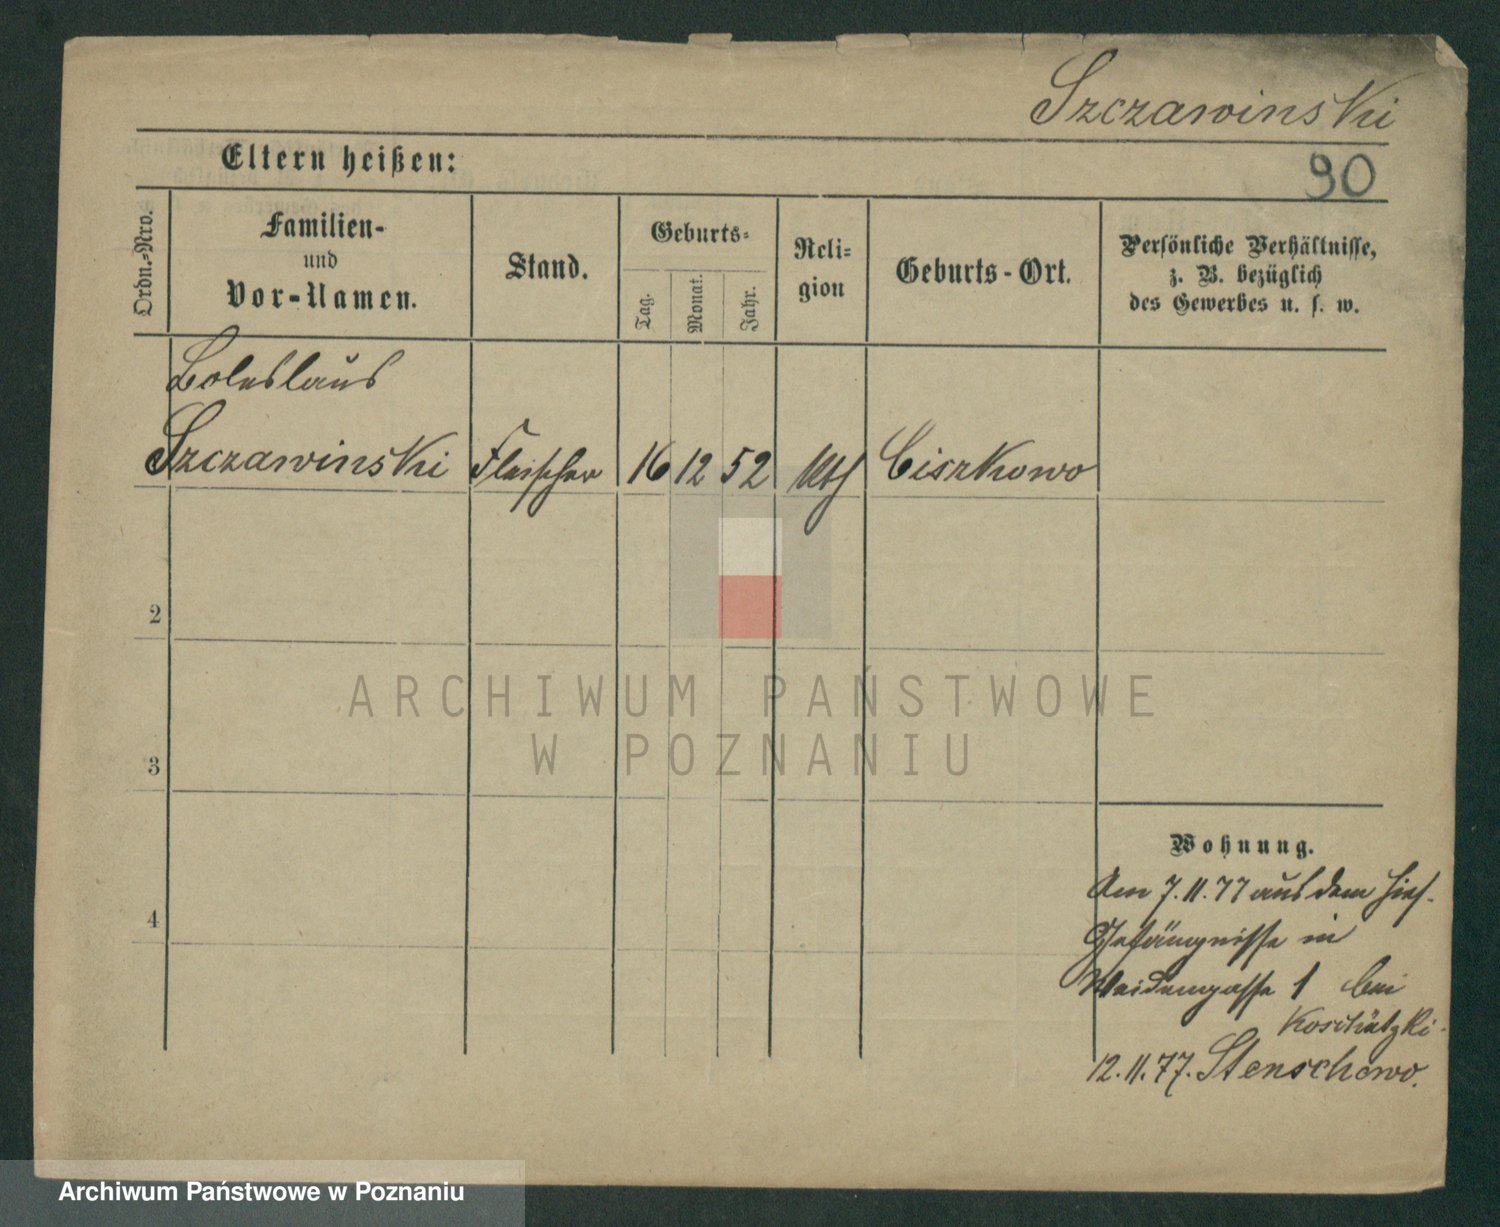 Szczawinski
Eltern heißen:
90
Ordn.-Nro.
Familien-
und
Vor-Namen.
Stand.
Geburts-
Tag.
Monat.
Jahr.
Reli-
gion
Geburts-Ort.
Persönliche Verhältnisse,
z. B. bezüglich
des Gewerbes u. s. w.
Boleslaus
Szczawinski
Fleischer
16
12
52
Ciszkowo
2
3
4
Wohnung.
Am 7.11.77 aus dem hies.
Gefängnisse in
Weidengasse 1 bei
12.11.77. Stenschewo.
ARCHIWUM PAŃSTWOWE
W POZNANIU
Archiwum Państwowe w Poznaniu